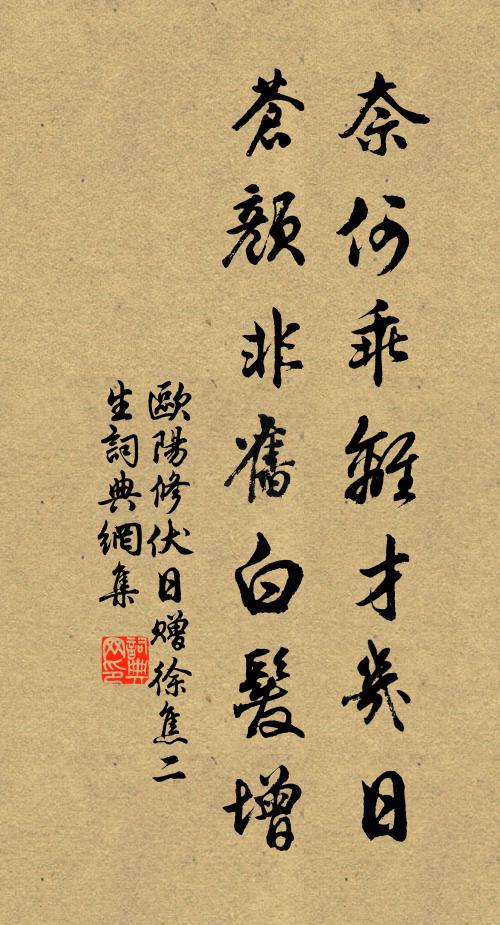 奈何乖離才幾日
蒼顏非舊白髮增
歐陽修伏日赠徐焦二
生詞典網集
詞典
网印